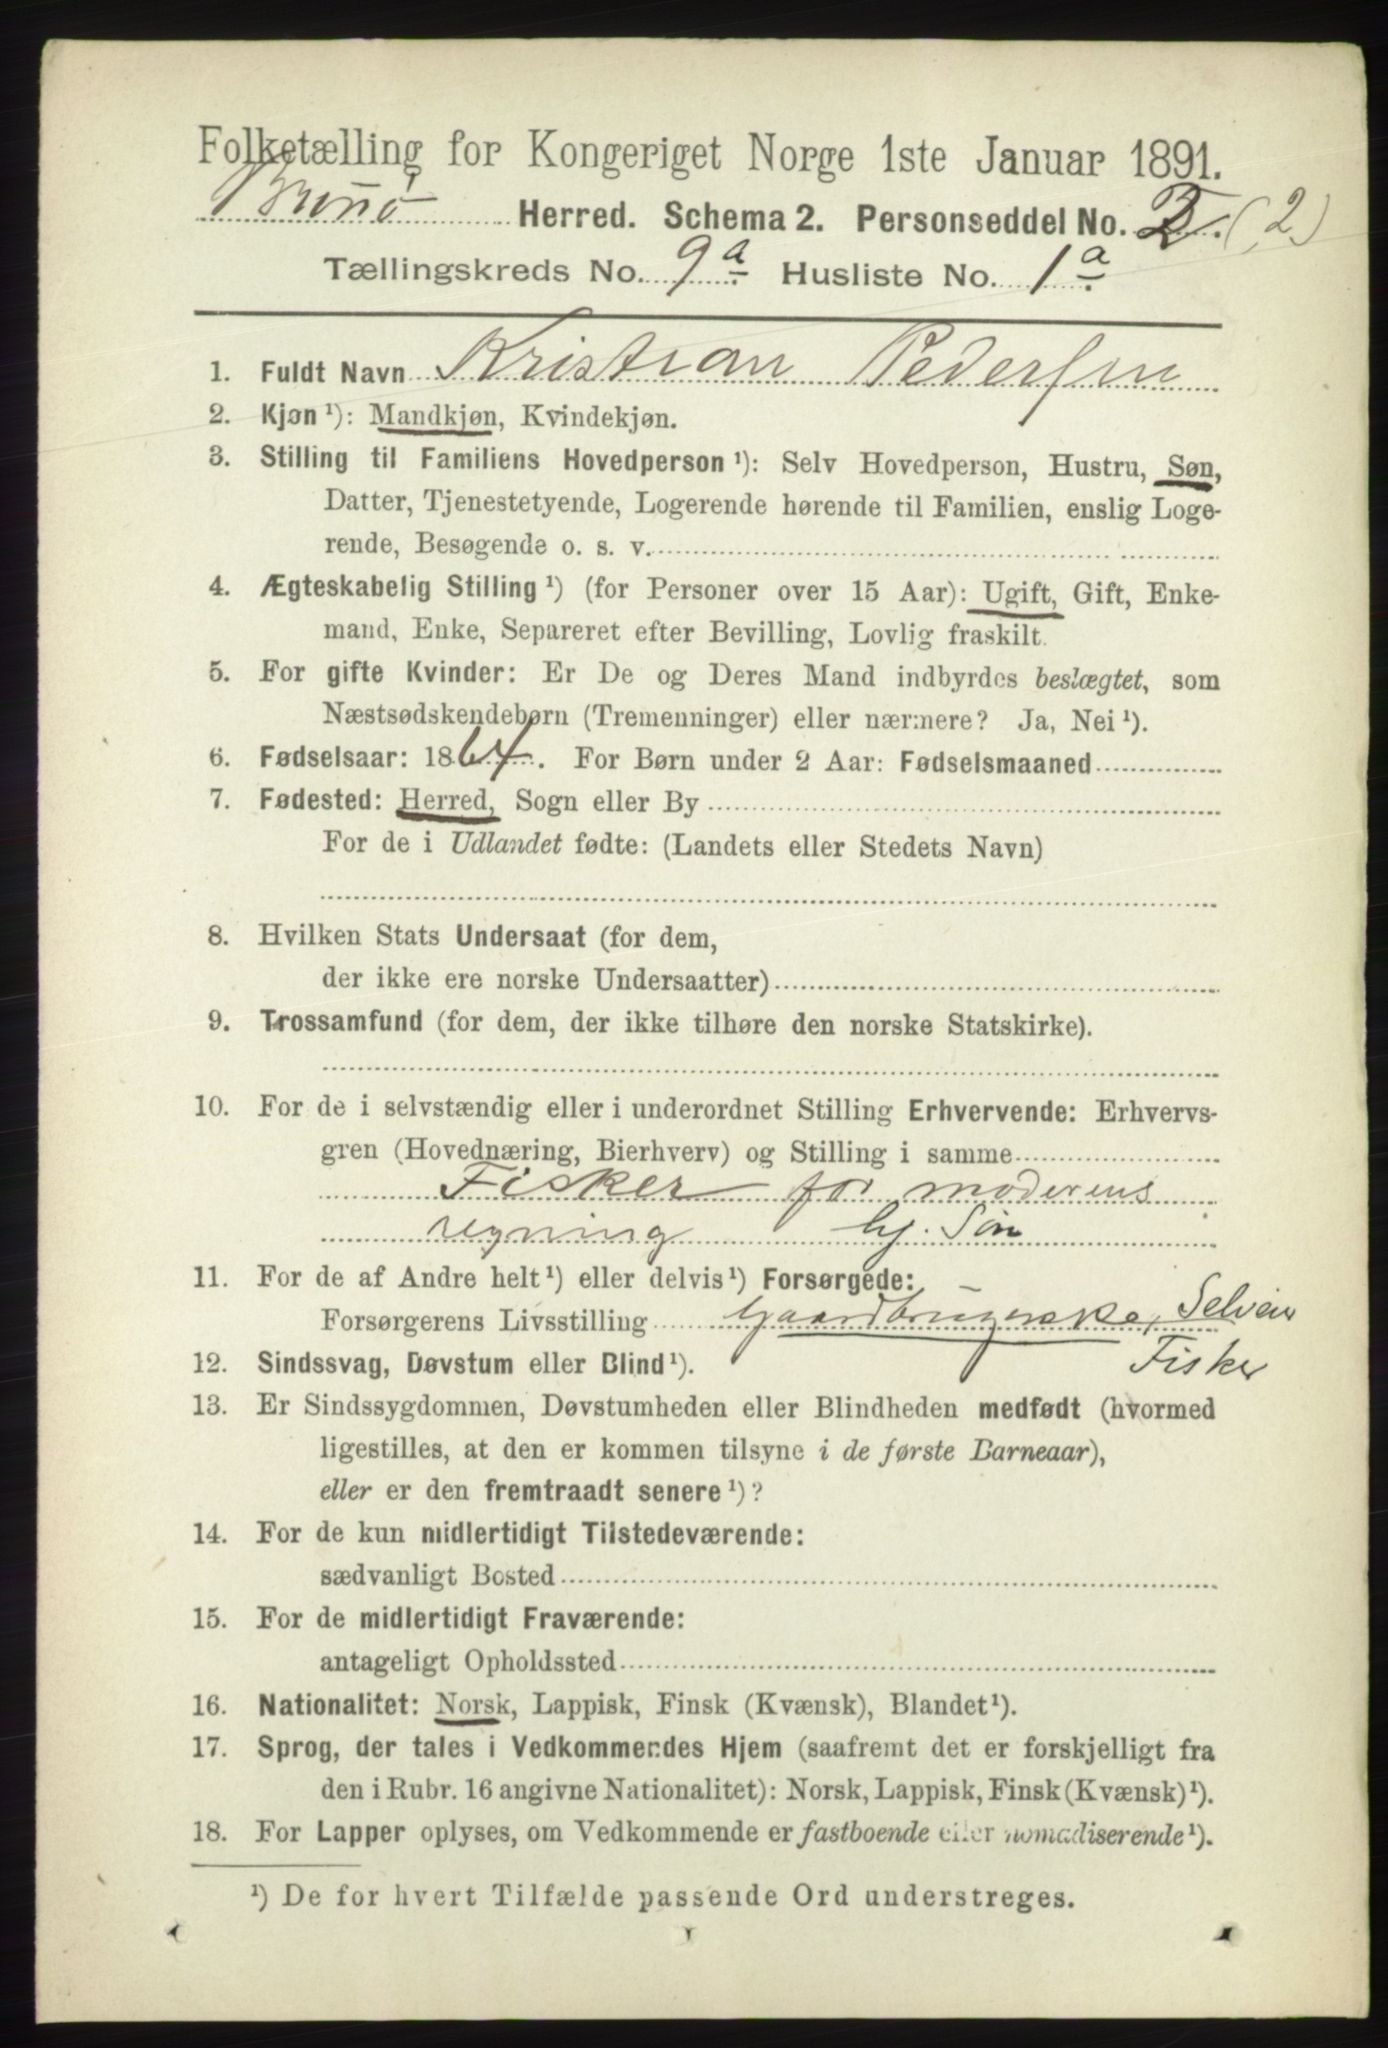 Folketælling for Kongeriget Norge 1ste Januar 1891.
Brønø Herred. Schema 2. Personseddel No. 2. (2)
Tællingskreds No. 9a. Husliste No. 1a.
1. Fuldt Navn Kristian Pedersen
2. Kjøn ¹): Mandkjøn, Kvindekjøn.
3. Stilling til Familiens Hovedperson ¹): Selv Hovedperson, Hustru, Søn,
Datter, Tjenestetyende, Logerende hørende til Familien, enslig Loge-
rende, Besøgende o. s. v.
4. Ægteskabelig Stilling ¹) (for Personer over 15 Aar): Ugift, Gift, Enke-
mand, Enke, Separeret efter Bevilling, Lovlig fraskilt.
5. For gifte Kvinder: Er De og Deres Mand indbyrdes beslægtet, som
Næstsødskendebørn (Tremenninger) eller nærmere? Ja, Nei ¹).
6. Fødselsaar: 1864. For Børn under 2 Aar: Fødselsmaaned
7. Fødested: Herred, Sogn eller By
For de i Udlandet fødte: (Landets eller Stedets Navn)
8. Hvilken Stats Undersaat (for dem,
der ikke ere norske Undersaatter)
9. Trossamfund (for dem, der ikke tilhøre den norske Statskirke).
10. For de i selvstændig eller i underordnet Stilling Erhvervende: Erhvervs-
gren (Hovednæring, Bierhverv) og Stilling i samme
Fisker for moderens
regning hj. Søn
11. For de af Andre helt ¹) eller delvis ¹) Forsørgede:
Forsørgerens Livsstilling Gaardbrugerske, Selveier
Fisker
12. Sindssvag, Døvstum eller Blind ¹).
13. Er Sindssygdommen, Døvstumheden eller Blindheden medfødt (hvormed
ligestilles, at den er kommen tilsyne i de første Barneaar),
eller er den fremtraadt senere ¹)?
14. For de kun midlertidigt Tilstedeværende:
sædvanligt Bosted
15. For de midlertidigt Fraværende:
antageligt Opholdssted
16. Nationalitet: Norsk, Lappisk, Finsk (Kvænsk), Blandet ¹).
17. Sprog, der tales i Vedkommendes Hjem (saafremt det er forskjelligt fra
den i Rubr. 16 angivne Nationalitet): Norsk, Lappisk, Finsk (Kvænsk) ¹).
18. For Lapper oplyses, om Vedkommende er fastboende eller nomadiserende ¹).
¹) De for hvert Tilfælde passende Ord understreges.